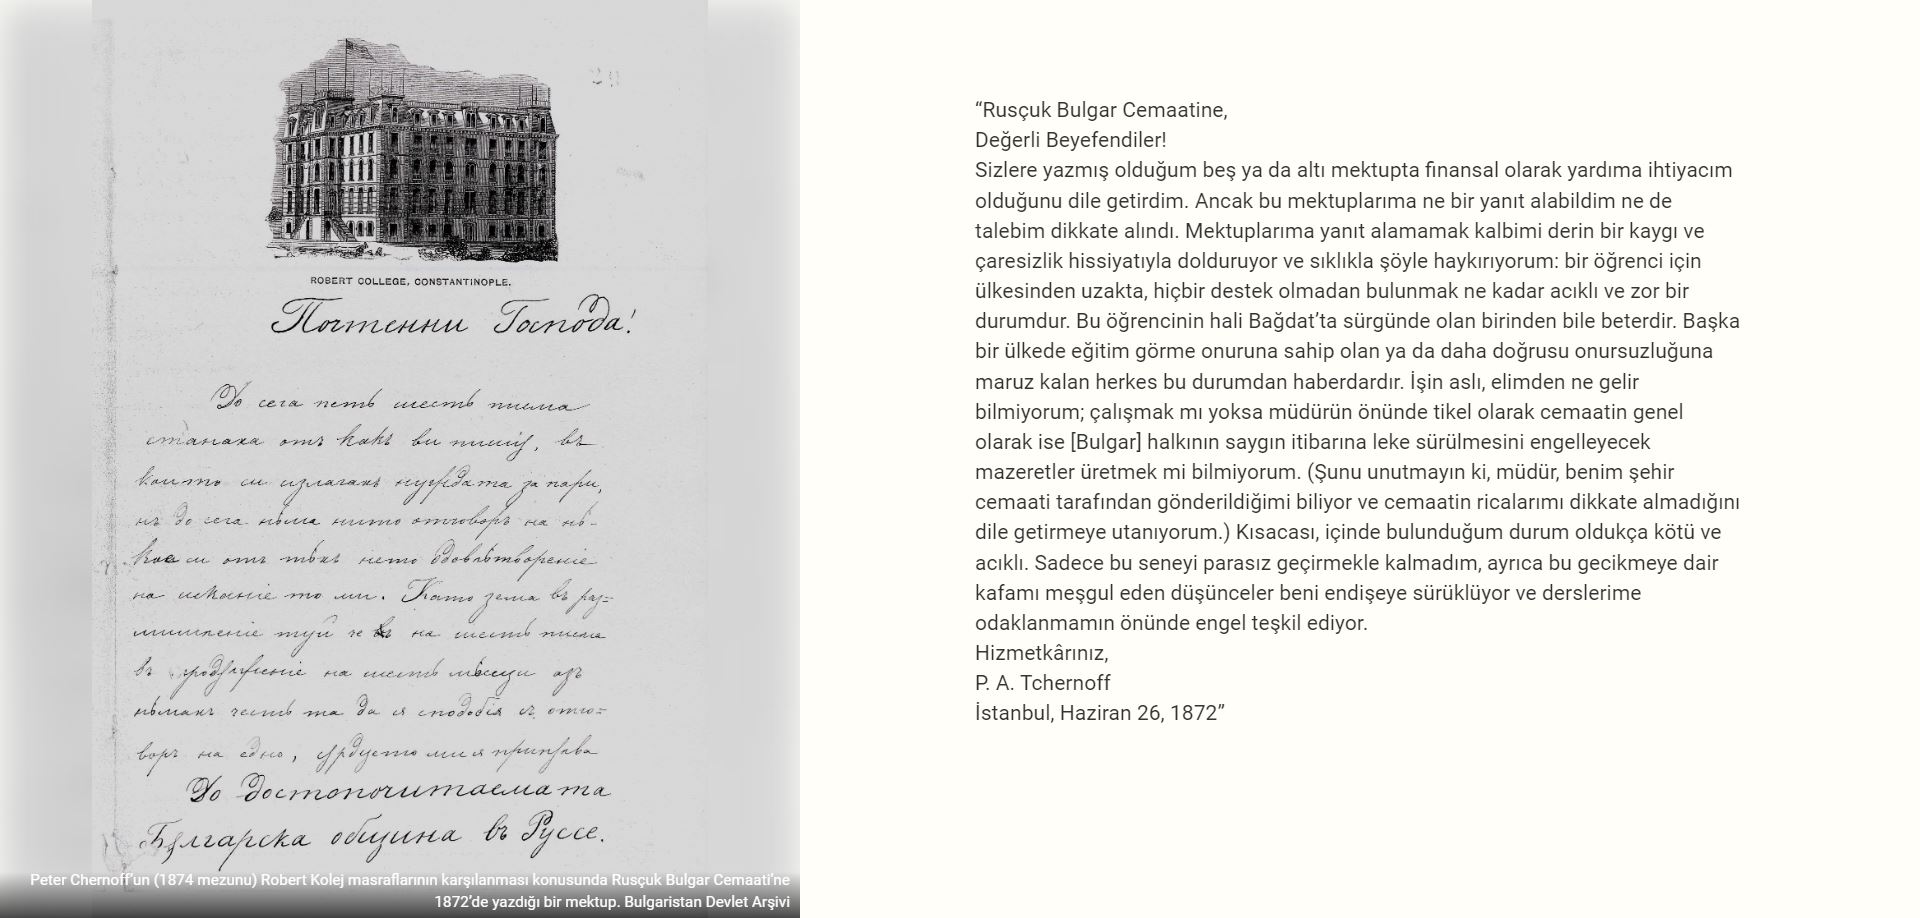 ROBERT COLLEGE, CONSTANTINOPLE.
Почтенни Господа!
До сега петь шесть писма
станаха отъ какъ ви пишѫ, въ
които си излагамъ нуждата за пари,
нъ до сега нѣма нито отговоръ на нѣ-
кое си отъ тѣхъ нето удовлѣтворение
на исканіе то ми. Като зема въ раз=
мишление туй че на шесть писма
въ продължение на шесть мѣсеци азъ
нѣмахъ честь та да ся сподобіѫ съ отго=
воръ на едно, сърдцето ми ся
До достопочитаема та
Българска община въ Руссе.
Peter Chernoff’un (1874 mezunu) Robert Kolej masraflarının karşılanması konusunda Rusçuk Bulgar Cemaati’ne
1872’de yazdığı bir mektup. Bulgaristan Devlet Arşivi
“Rusçuk Bulgar Cemaatine,
Değerli Beyefendiler!
Sizlere yazmış olduğum beş ya da altı mektupta finansal olarak yardıma ihtiyacım
olduğunu dile getirdim. Ancak bu mektuplarıma ne bir yanıt alabildim ne de
talebim dikkate alındı. Mektuplarıma yanıt alamamak kalbimi derin bir kaygı ve
çaresizlik hissiyatıyla dolduruyor ve sıklıkla şöyle haykırıyorum: bir öğrenci için
ülkesinden uzakta, hiçbir destek olmadan bulunmak ne kadar acıklı ve zor bir
durumdur. Bu öğrencinin hali Bağdat’ta sürgünde olan birinden bile beterdir. Başka
bir ülkede eğitim görme onuruna sahip olan ya da daha doğrusu onursuzluğuna
maruz kalan herkes bu durumdan haberdardır. İşin aslı, elimden ne gelir
bilmiyorum; çalışmak mı yoksa müdürün önünde tikel olarak cemaatin genel
olarak ise [Bulgar] halkının saygın itibarına leke sürülmesini engelleyecek
mazeretler üretmek mi bilmiyorum. (Şunu unutmayın ki, müdür, benim şehir
cemaati tarafından gönderildiğimi biliyor ve cemaatin ricalarımı dikkate almadığını
dile getirmeye utanıyorum.) Kısacası, içinde bulunduğum durum oldukça kötü ve
acıklı. Sadece bu seneyi parasız geçirmekle kalmadım, ayrıca bu gecikmeye dair
kafamı meşgul eden düşünceler beni endişeye sürüklüyor ve derslerime
odaklanmamın önünde engel teşkil ediyor.
Hizmetkârınız,
P. A. Tchernoff
İstanbul, Haziran 26, 1872”